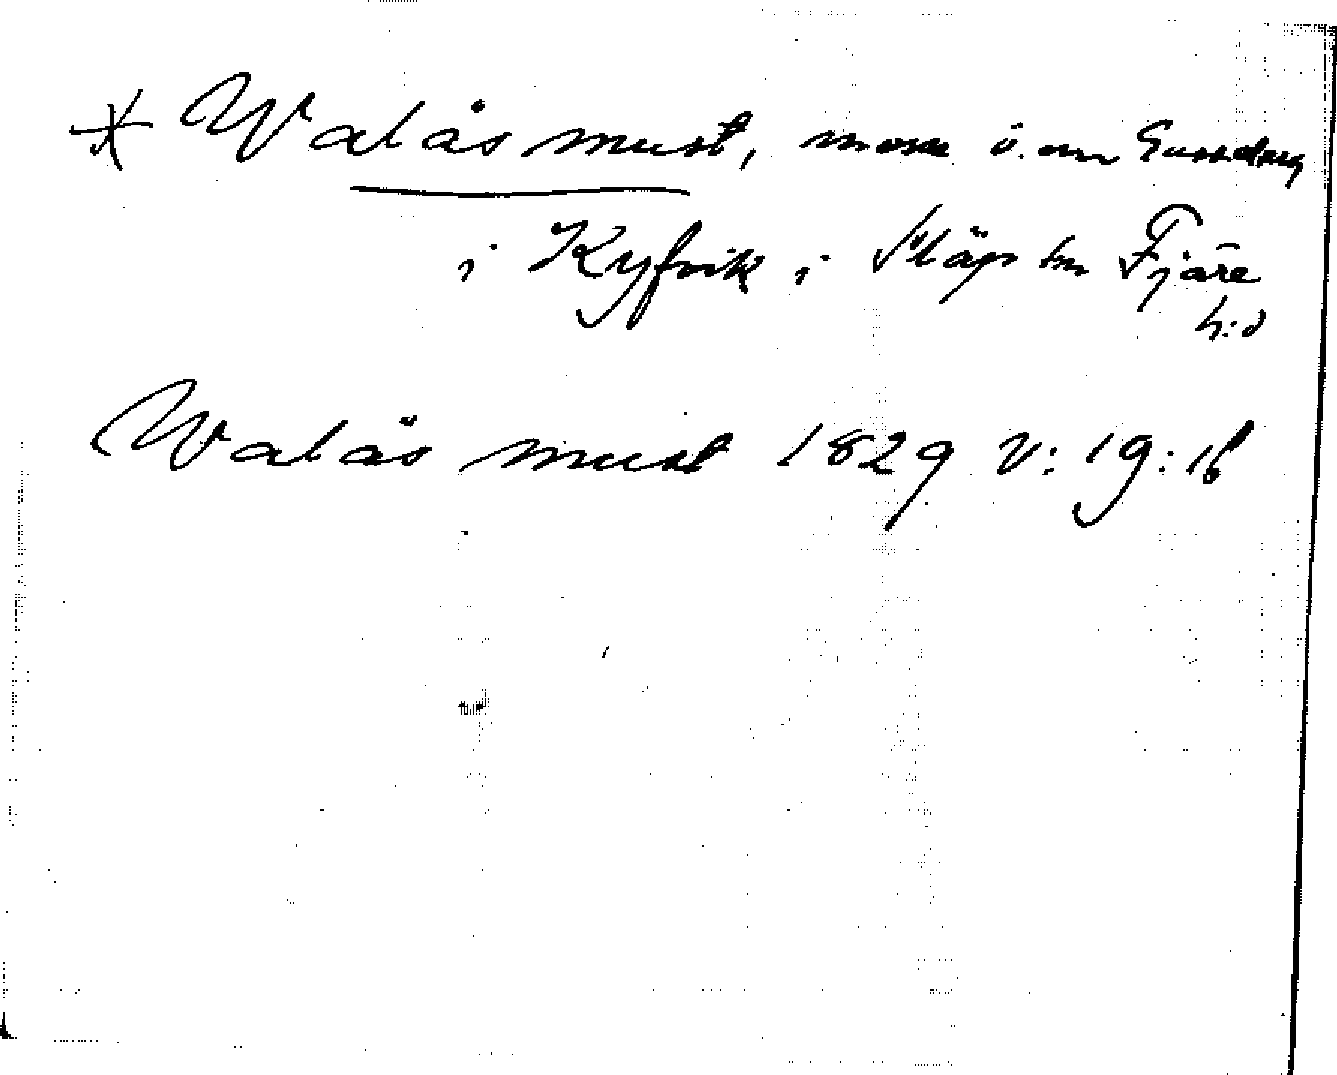 * Walås must, mosse ö. om
i Kyfvik i Släps sn Fjäre
h:d
Walås must 1829 V: 19: 16